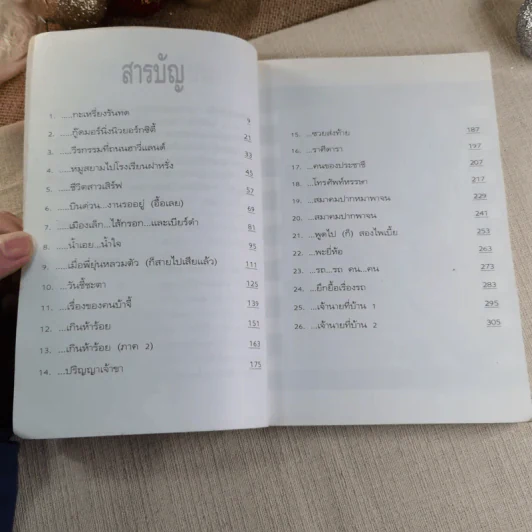 สารบัญ
1. ...กะเหรี่ยงรันทด 9
2. ...กู๊ดมอร์นิ่งนิวยอร์กซิตี้ 21
3. ...วีรกรรมที่ถนนฮาวี่แลนด์ 33
4. ...หมูสยามไปโรงเรียนฝาหรั่ง 45
5. ...ชีวิตสาวเสิร์ฟ 57
6. ...บินด่วน...งานรออยู่ (อื้อเลย) 69
7. ...เมืองเล็ก...ไส้กรอก...และเบียร์ดำ 83
8. ...น้ำเอย...น้ำใจ 95
9. ...เมื่อพี่ยุ่นหลวมตัว (ก็สายไปเสียแล้ว) 111
10. ...วันชี้ชะตา 125
11. ...เรื่องของคนบ้าจี้ 139
12. ...เกินห้าร้อย 151
13. ...เกินห้าร้อย (ภาค 2) 163
14. ...ปริญญาเจ้าขา 175
15. ...ชวยส่งท้าย 187
16. ...ราศีดารา 197
17. ...คนของประชาชี 207
18. ...โทรศัพท์หรรษา 217
19. ...สมาคมปากหมาพาจน 229
20. ...สมาคมปากพาจน 241
21. ...พูดไป (ก็) สองไพเบี้ย 253
22. ...พะยี่ห้อ 263
23. ...รถ...รถ คน...คน 273
24. ...ยึกยื้อเรื่องรถ 283
25. ...เจ้านายที่บ้าน 1 295
26. ...เจ้านายที่บ้าน 2 305